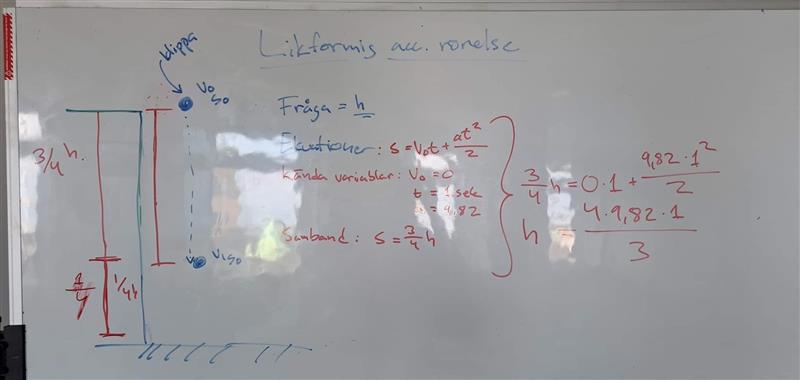 Likformig acc. rörelse
klippa
V₀
S₀
3/4 h.
Fråga = h
Ekvationer: s = V₀t + at²/2
Kända variablar: V₀ = 0
t = 1 sek
a = 9,82
Samband: s = 3/4 h
3/4 h = 0·1 + 9,82·1²/2
h = 4·9,82·1/3
1/4 h